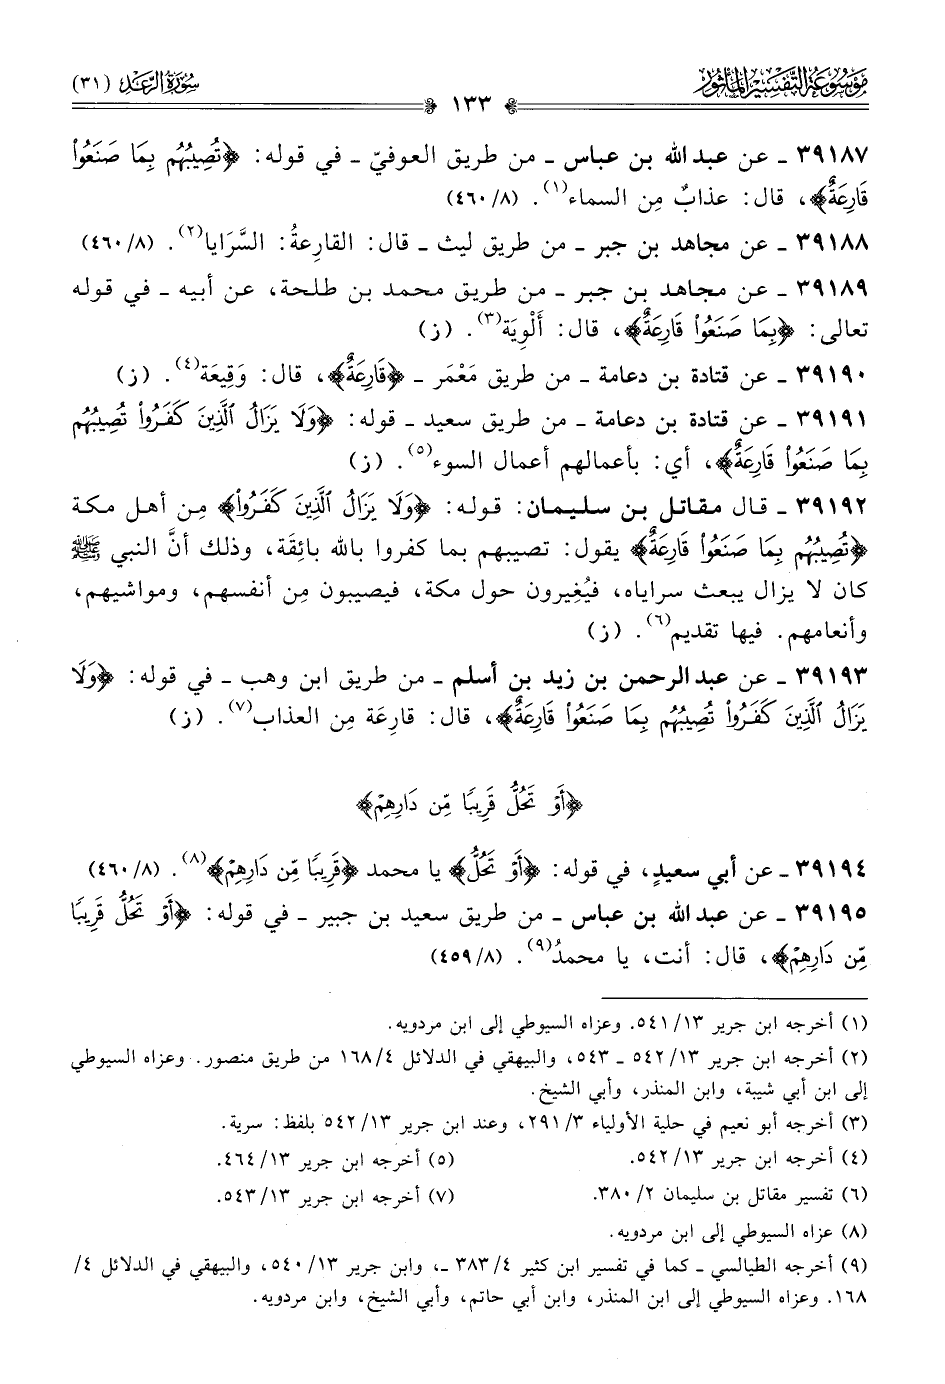 مَوْسُوعَة التَّفْسِير المَأْثُور
سُورَةُ الرَّعْد (٣١)
١٣٣
٣٩١٨٧ ـ عن عبد الله بن عباس ـ من طريق العوفيّ ـ في قوله: ﴿تُصِيبُهُم بِمَا صَنَعُوا۟
قَارِعَةٌ﴾، قال: عذابٌ مِن السماء(١). (٨/ ٤٦٠)
٣٩١٨٨ ـ عن مجاهد بن جبر ـ من طريق ليث ـ قال: القارِعةُ: السَّرَايا(٢). (٨/ ٤٦٠)
٣٩١٨٩ ـ عن مجاهد بن جبر ـ من طريق محمد بن طلحة، عن أبيه ـ في قوله
تعالى: ﴿بِمَا صَنَعُوا۟ قَارِعَةٌ﴾، قال: أَلْوِيَة(٣). (ز)
٣٩١٩٠ ـ عن قتادة بن دعامة ـ من طريق مَعْمَر ـ ﴿قَارِعَةٌ﴾، قال: وَقِيعَة(٤). (ز)
٣٩١٩١ ـ عن قتادة بن دعامة ـ من طريق سعيد ـ قوله: ﴿وَلَا يَزَالُ ٱلَّذِينَ كَفَرُوا۟ تُصِيبُهُم
بِمَا صَنَعُوا۟ قَارِعَةٌ﴾، أي: بأعمالهم أعمال السوء(٥). (ز)
٣٩١٩٢ ـ قال مقاتل بن سليمان: قوله: ﴿وَلَا يَزَالُ ٱلَّذِينَ كَفَرُوا۟﴾ مِن أهل مكة
﴿تُصِيبُهُم بِمَا صَنَعُوا۟ قَارِعَةٌ﴾ يقول: تصيبهم بما كفروا بالله بائِقَة، وذلك أنَّ النبي ﷺ
كان لا يزال يبعث سراياه، فيُغِيرون حول مكة، فيصيبون مِن أنفسهم، ومواشيهم،
وأنعامهم. فيها تقديم(٦). (ز)
٣٩١٩٣ ـ عن عبد الرحمن بن زيد بن أسلم ـ من طريق ابن وهب ـ في قوله: ﴿وَلَا
يَزَالُ ٱلَّذِينَ كَفَرُوا۟ تُصِيبُهُم بِمَا صَنَعُوا۟ قَارِعَةٌ﴾، قال: قارِعَة مِن العذاب(٧). (ز)
﴿أَوْ تَحُلُّ قَرِيبًا مِّن دَارِهِمْ﴾
٣٩١٩٤ ـ عن أبي سعيدٍ، في قوله: ﴿أَوْ تَحُلُّ﴾ يا محمد ﴿قَرِيبًا مِّن دَارِهِمْ﴾(٨). (٨/ ٤٦٠)
٣٩١٩٥ ـ عن عبد الله بن عباس ـ من طريق سعيد بن جبير ـ في قوله: ﴿أَوْ تَحُلُّ قَرِيبًا
مِّن دَارِهِمْ﴾، قال: أنت، يا محمدُ(٩). (٨/ ٤٥٩)
(١) أخرجه ابن جرير ١٣/ ٥٤١. وعزاه السيوطي إلى ابن مردويه.
(٢) أخرجه ابن جرير ١٣/ ٥٤٢ ـ ٥٤٣، والبيهقي في الدلائل ٤/ ١٦٨ من طريق منصور. وعزاه السيوطي
إلى ابن أبي شيبة، وابن المنذر، وأبي الشيخ.
(٣) أخرجه أبو نعيم في حلية الأولياء ٣/ ٢٩١، وعند ابن جرير ١٣/ ٥٤٢ بلفظ: سرية.
(٤) أخرجه ابن جرير ١٣/ ٥٤٢. (٥) أخرجه ابن جرير ١٣/ ٤٦٤.
(٦) تفسير مقاتل بن سليمان ٢/ ٣٨٠. (٧) أخرجه ابن جرير ١٣/ ٥٤٣.
(٨) عزاه السيوطي إلى ابن مردويه.
(٩) أخرجه الطيالسي ـ كما في تفسير ابن كثير ٤/ ٣٨٣ ـ، وابن جرير ١٣/ ٥٤٠، والبيهقي في الدلائل ٤/
١٦٨. وعزاه السيوطي إلى ابن المنذر، وابن أبي حاتم، وأبي الشيخ، وابن مردويه.